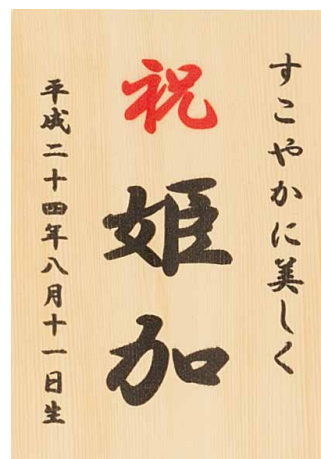 すこやかに美しく
祝
姫加
平成二十四年八月十一日生